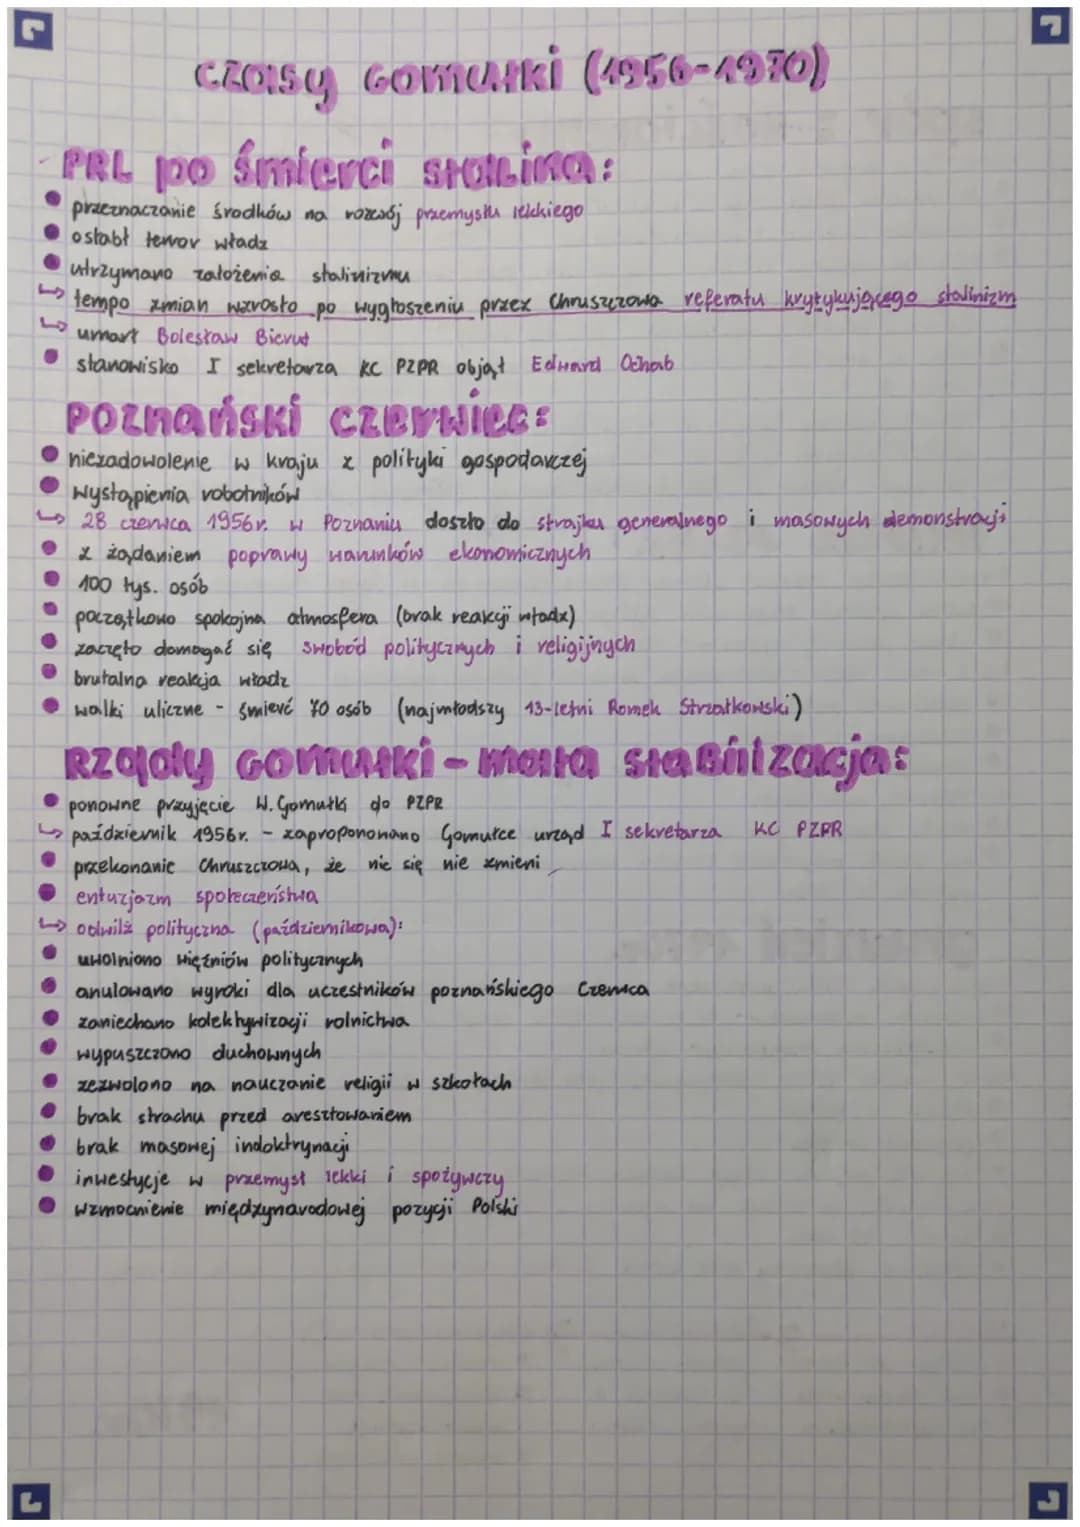 CZASY GOMUŁKI (1956-1970)
PRL po śmierci stalina:
przeznaczanie środków na rozwój przemysłu lekkiego
osłabł terror władz
utrzymano założenia stalinizmu
↳ tempo zmian wzrosło po wygłoszeniu przez Chruszczowa referatu krytykującego stalinizm
↳ umarł Bolesław Bierut
stanowisko I sekretarza KC PZPR objął Edward Ochab
POZNAŃSKI CZERWIEC:
niezadowolenie w kraju z polityki gospodarczej
wystąpienia robotników
↳ 28 czerwca 1956r. w Poznaniu doszło do strajku generalnego i masowych demonstracji
z żądaniem poprawy warunków ekonomicznych
100 tys. osób
początkowo spokojna atmosfera (brak reakcji władz)
zaczęto domagać się swobód politycznych i religijnych
brutalna reakcja władz
walki uliczne - śmierć 70 osób (najmłodszy 13-letni Romek Strzałkowski)
RZĄDY GOMUŁKI - mała staBilizacja:
ponowne przyjęcie W. Gomułki do PZPR
↳ październik 1956r. - zapropononano Gomułce urząd I sekretarza KC PZPR
przekonanie Chruszczowa, że nic się nie zmieni
entuzjazm społeczeństwa
↳ odwilż polityczna (październikowa):
uwolniono więźniów politycznych
anulowano wyroki dla uczestników poznańskiego Czerwca
zaniechano kolektywizacji rolnictwa
wypuszczono duchownych
zezwolono na nauczanie religii w szkołach
brak strachu przed aresztowaniem
brak masowej indoktrynacji
inwestycje w przemysł lekki i spożywczy
wzmocnienie międzynarodowej pozycji Polski